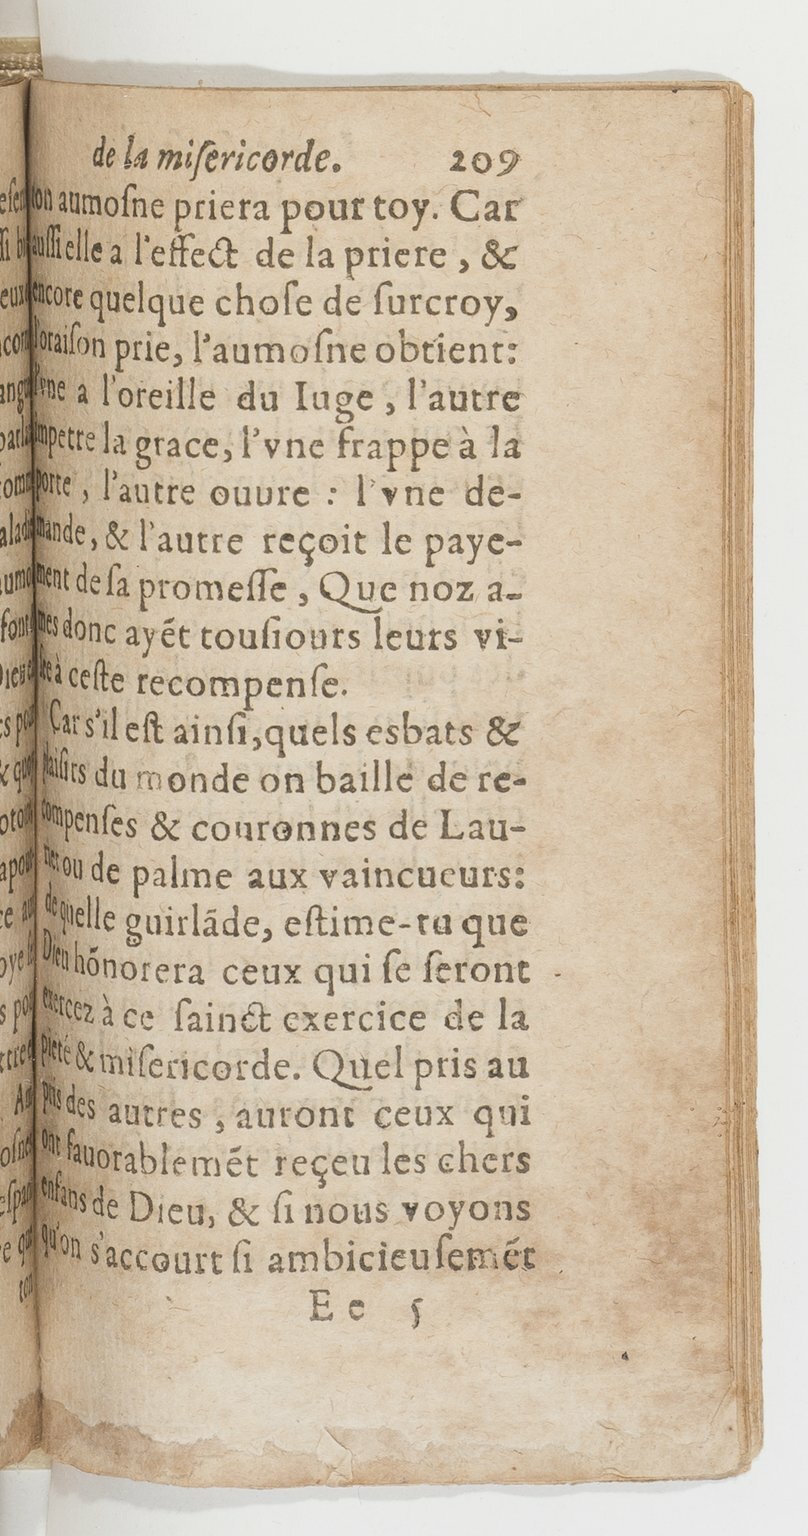 de la miſericorde. 209
ton aumoſne priera pour toy. Car
auſſi elle a l'effect de la priere, &
encore quelque choſe de ſurcroy,
l'oraiſon prie, l'aumoſne obtient:
l'vne a l'oreille du Iuge, l'autre
impetre la grace, l'vne frappe à la
porte, l'autre ouure : l'vne de-
mande, & l'autre reçoit le paye-
ment de ſa promeſſe, Que noz a-
mes donc ayẽt touſiours leurs vi-
ſée à ceſte recompenſe.
Car s'il eſt ainſi, quels esbats &
plaiſirs du monde on baille de re-
compenſes & couronnes de Lau-
rier ou de palme aux vaincueurs:
de quelle guirlãde, eſtime-tu que
Dieu hõnorera ceux qui ſe ſeront
exercez à ce ſainct exercice de la
pieté & miſericorde. Quel pris au
pris des autres, auront ceux qui
ont fauorablemẽt reçeu les chers
enfans de Dieu, & ſi nous voyons
qu'on s'accourt ſi ambicieuſemẽt
E e 5